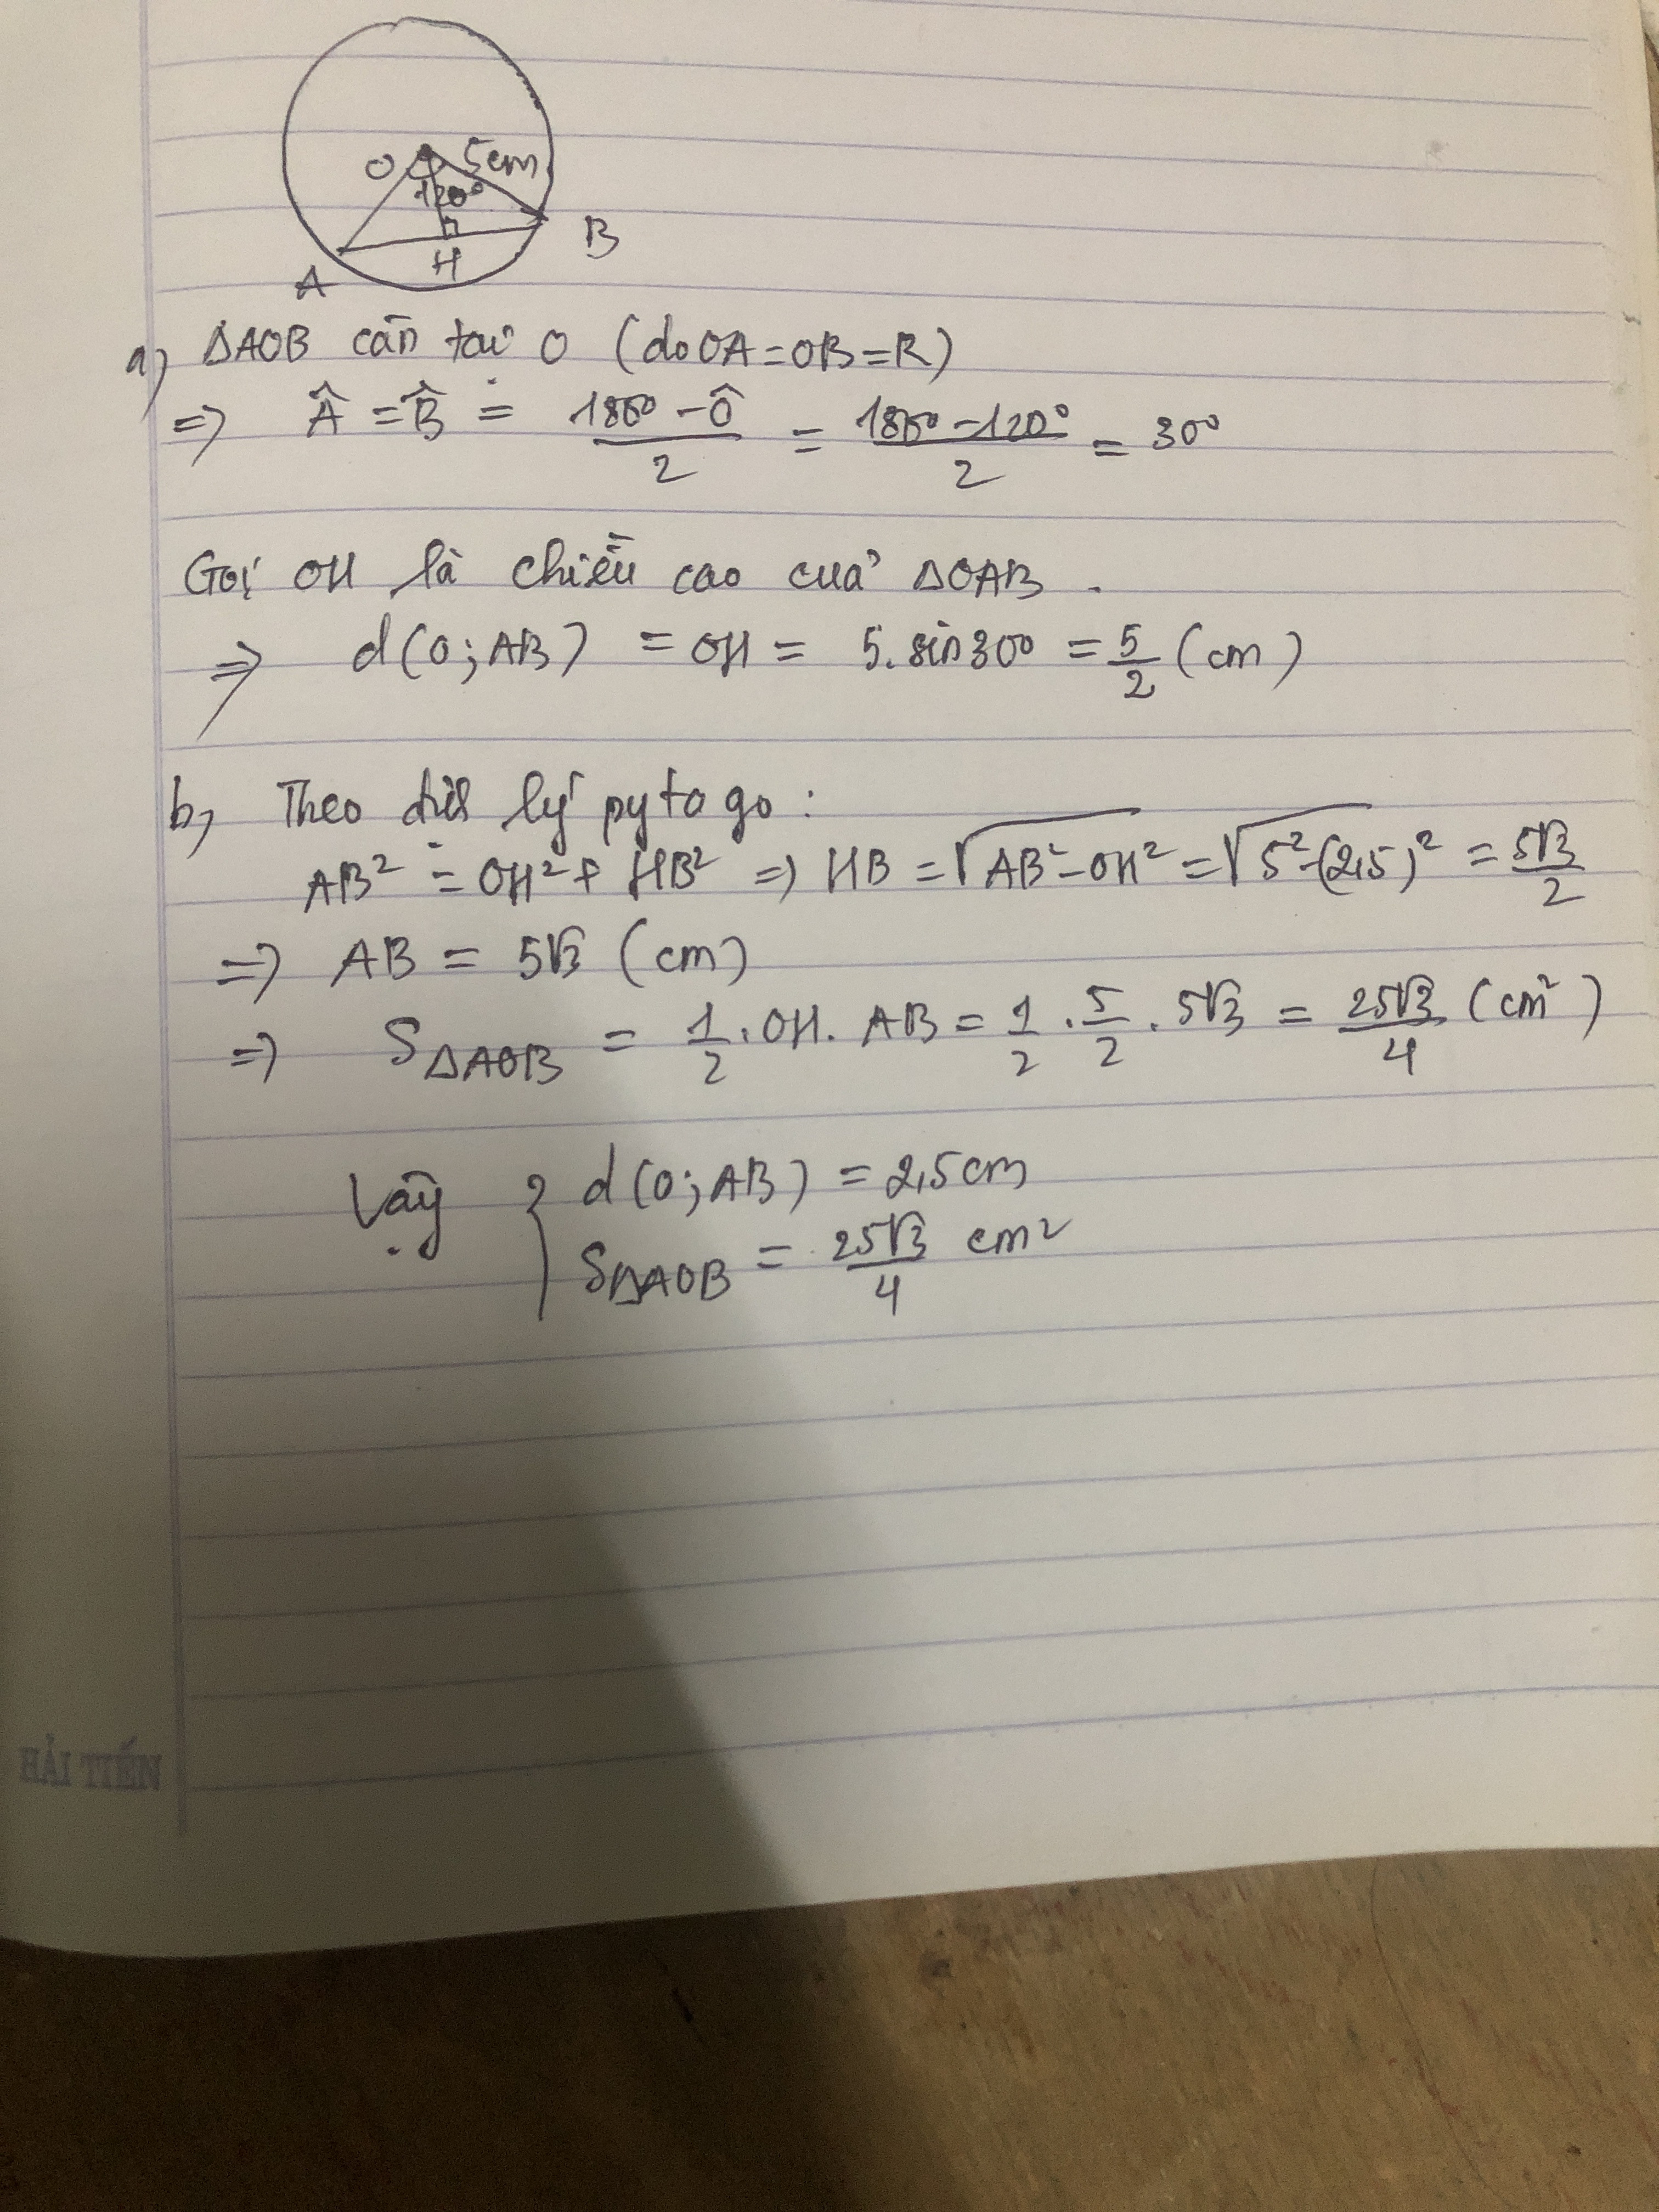 O 5cm
120°
A H B
a, ΔAOB cân tại O (do OA=OB=R)
=> Â = B̂ = (180° - Ô)/2 = (180° - 120°)/2 = 30°
Gọi OH là chiều cao của ΔOAB.
=> d(O; AB) = OH = 5. sin30° = 5/2 (cm)
b, Theo định lý pytago:
AB² = OH² + HB² => HB = √(AB² - OH²) = √(5² - (2,5)²) = 5√3/2
=> AB = 5√3 (cm)
=> SΔAOB = 1/2 . OH. AB = 1/2 . 5/2 . 5√3 = 25√3/4 (cm²)
Vậy { d(O; AB) = 2,5cm
SΔAOB = 25√3/4 cm²
HẢI TIẾN